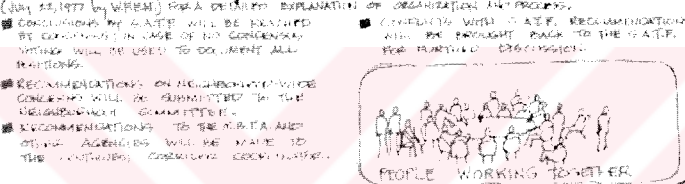 (July 22, 1977 by W.F.E.M.) FOR A DETAILED EXPLANATION OF ORGANIZATION AND PROCESS.
CONCLUSIONS BY G.A.T.F. WILL BE REACHED
BY CONSENSUS; IN CASE OF NO CONSENSUS,
VOTING WILL BE USED TO DOCUMENT ALL
POSITIONS.
RECOMMENDATIONS ON NEIGHBORHOOD-WIDE
CONCERNS WILL BE SUBMITTED TO THE
NEIGHBORHOOD COMMITTEE.
RECOMMENDATIONS TO THE AND
OTHER AGENCIES WILL BE MADE TO
THE CORRIDOR COORDINATOR.
CONFLICTS WITH G.A.T.F. RECOMMENDATION
WILL BE BROUGHT BACK TO THE G.A.T.F.
FOR FURTHER DISCUSSION.
PEOPLE WORKING TOGETHER